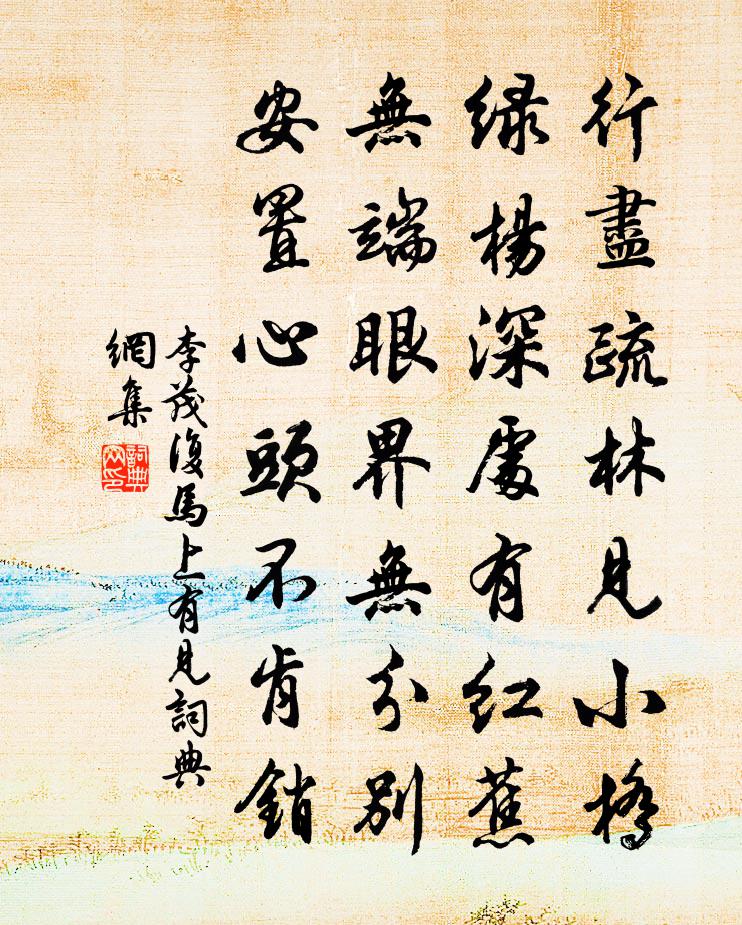 行盡疏林見小橋
綠楊深處有紅蕉
無端眼界無分別
安置心頭不肯銷
李茂復馬上有見詞典
網集
詞典
网印